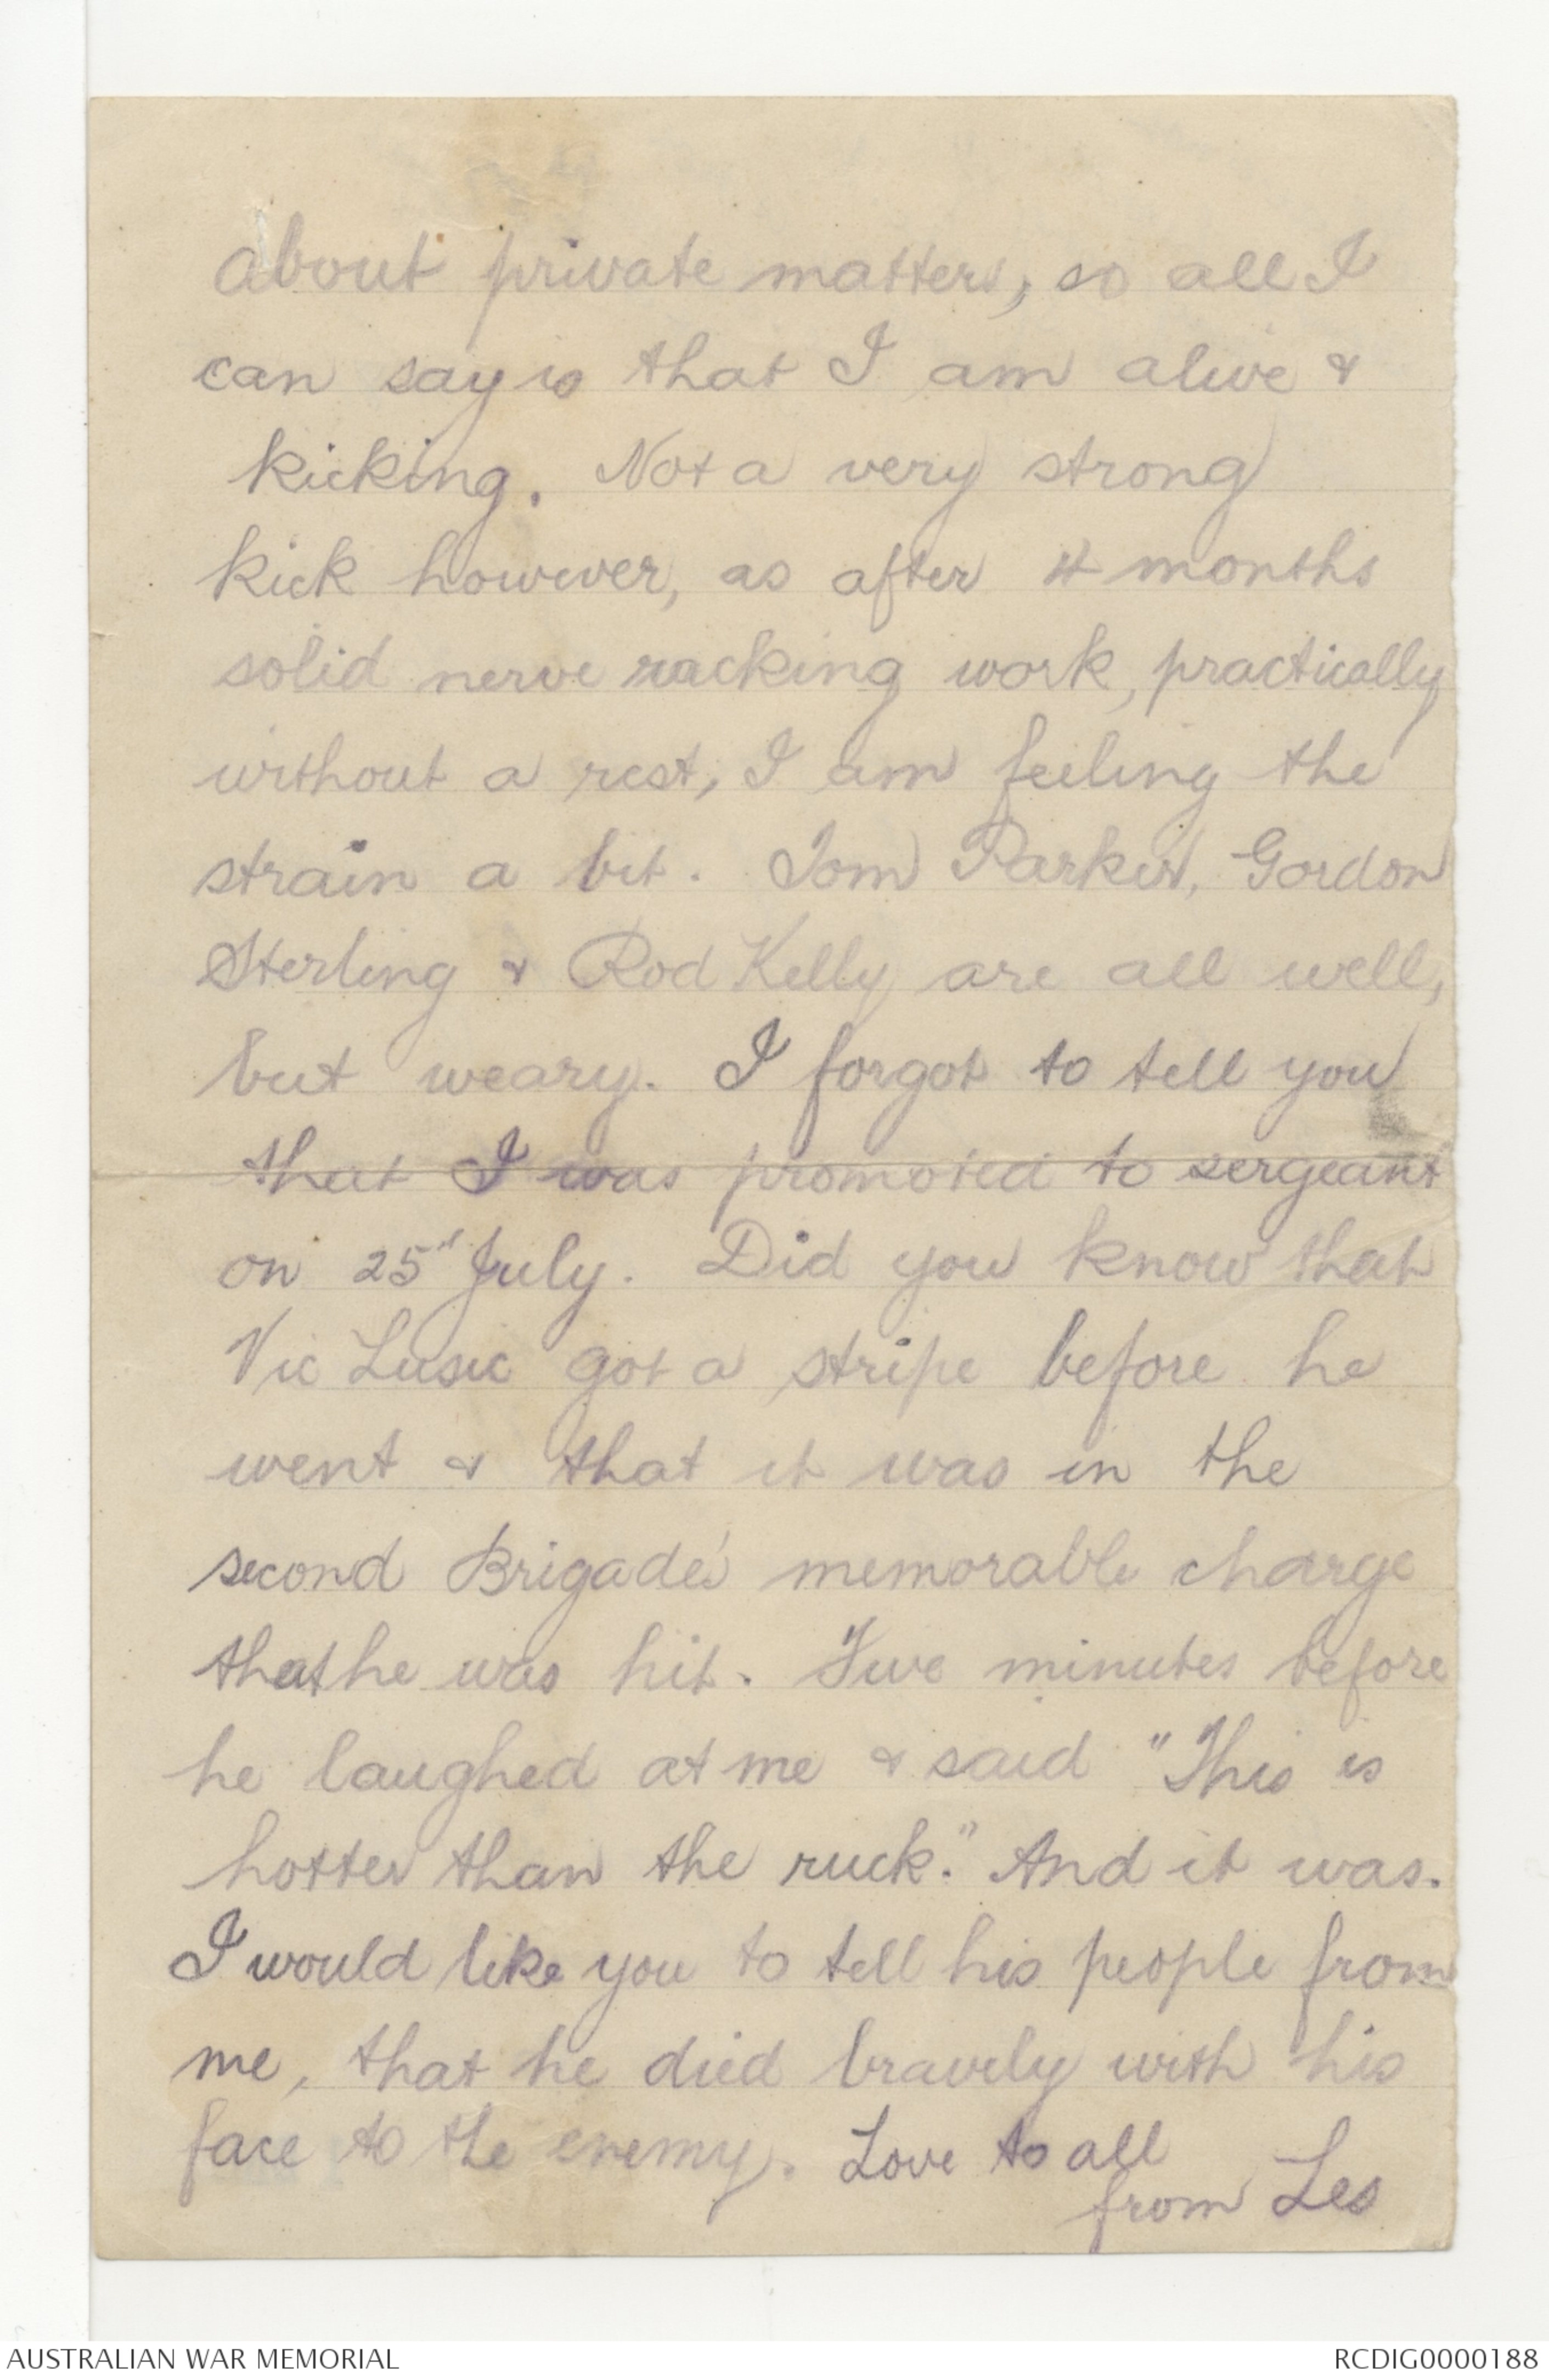 about private matters, so all I
can say is that I am alive &
kicking. Not a very strong
kick however, as after 4 months
solid nerve racking work, practically
without a rest, I am feeling the
strain a bit. Tom Parker, Gordon
Sterling & Rod Kelly are all well,
but weary. I forgot to tell you
that I was promoted to sergeant
on 25th July. Did you know that
Vic Lusic got a stripe before he
went & that it was in the
second Brigade's memorable charge
that he was hit. Five minutes before
he laughed at me & said "This is
hotter than the ruck." And it was.
I would like you to tell his people from
me, that he died bravely with his
face to the enemy. Love to all
from Les
AUSTRALIAN WAR MEMORIAL
RCDIG0000188